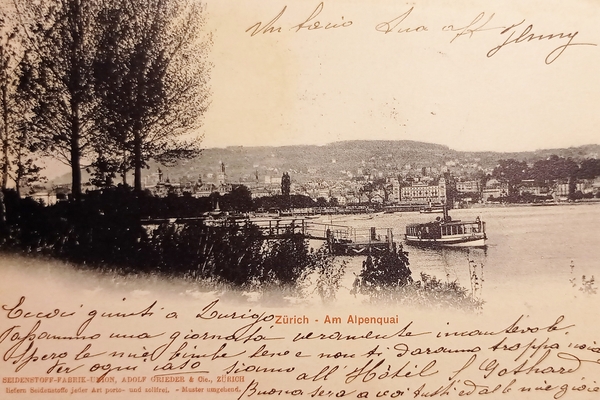 Un bacio Sua aff Jenny
Eccoci giunti a Zurigo
Zürich - Am Alpenquai
Passammo una giornata veramente incantevole.
Spero le mie bimbe bene e non ti daranno troppa noia
Per ogni caso siamo all'Hôtel S. Gothard
SEIDENSTOFF-FABRIK-UNION, ADOLF GRIEDER & Cie., ZÜRICH
liefern Seidenstoffe jeder Art porto- und zollfrei. - Muster umgehend.
Buona sera a voi tutti ed alle mie